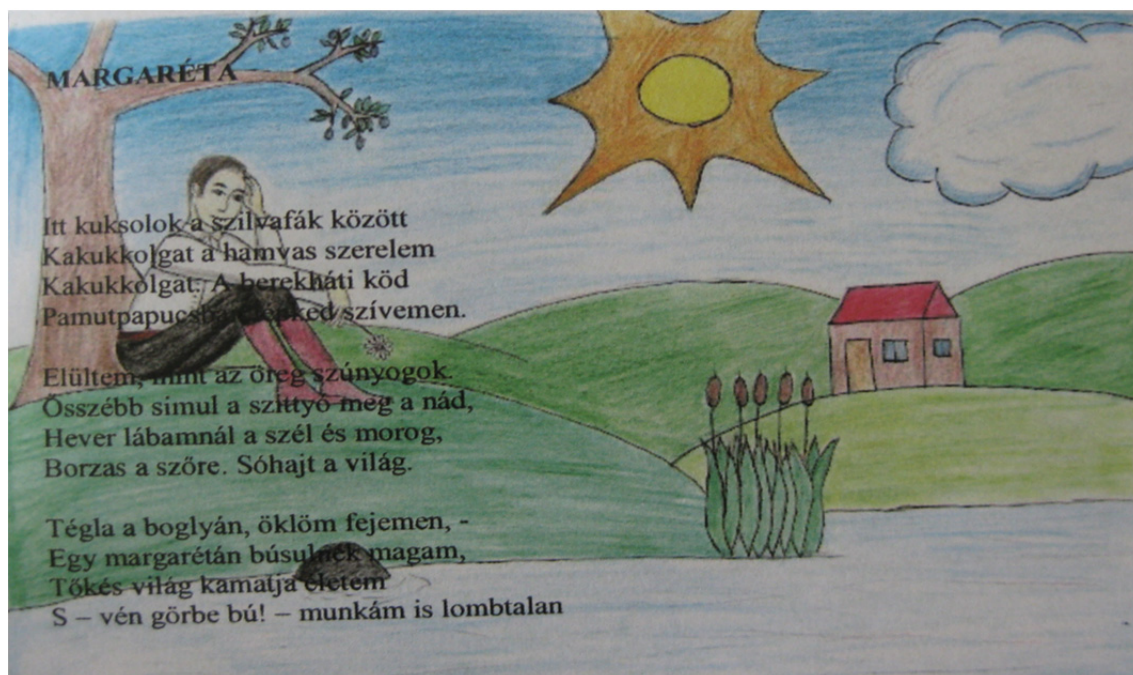 MARGARÉTA
Itt kuksolok a szilvafák között
Kakukkolgat a hamvas szerelem
Kakukkolgat. A berekháti köd
Pamutpapucsba lépked szívemen.
Elültem, mint az öreg szúnyogok.
Összébb simul a szittyó meg a nád,
Hever lábamnál a szél és morog,
Borzas a szőre. Sóhajt a világ.
Tégla a boglyán, öklöm fejemen, -
Egy margarétán búsulnék magam,
Tőkés világ kamatja életem
S – vén görbe bú! – munkám is lombtalan